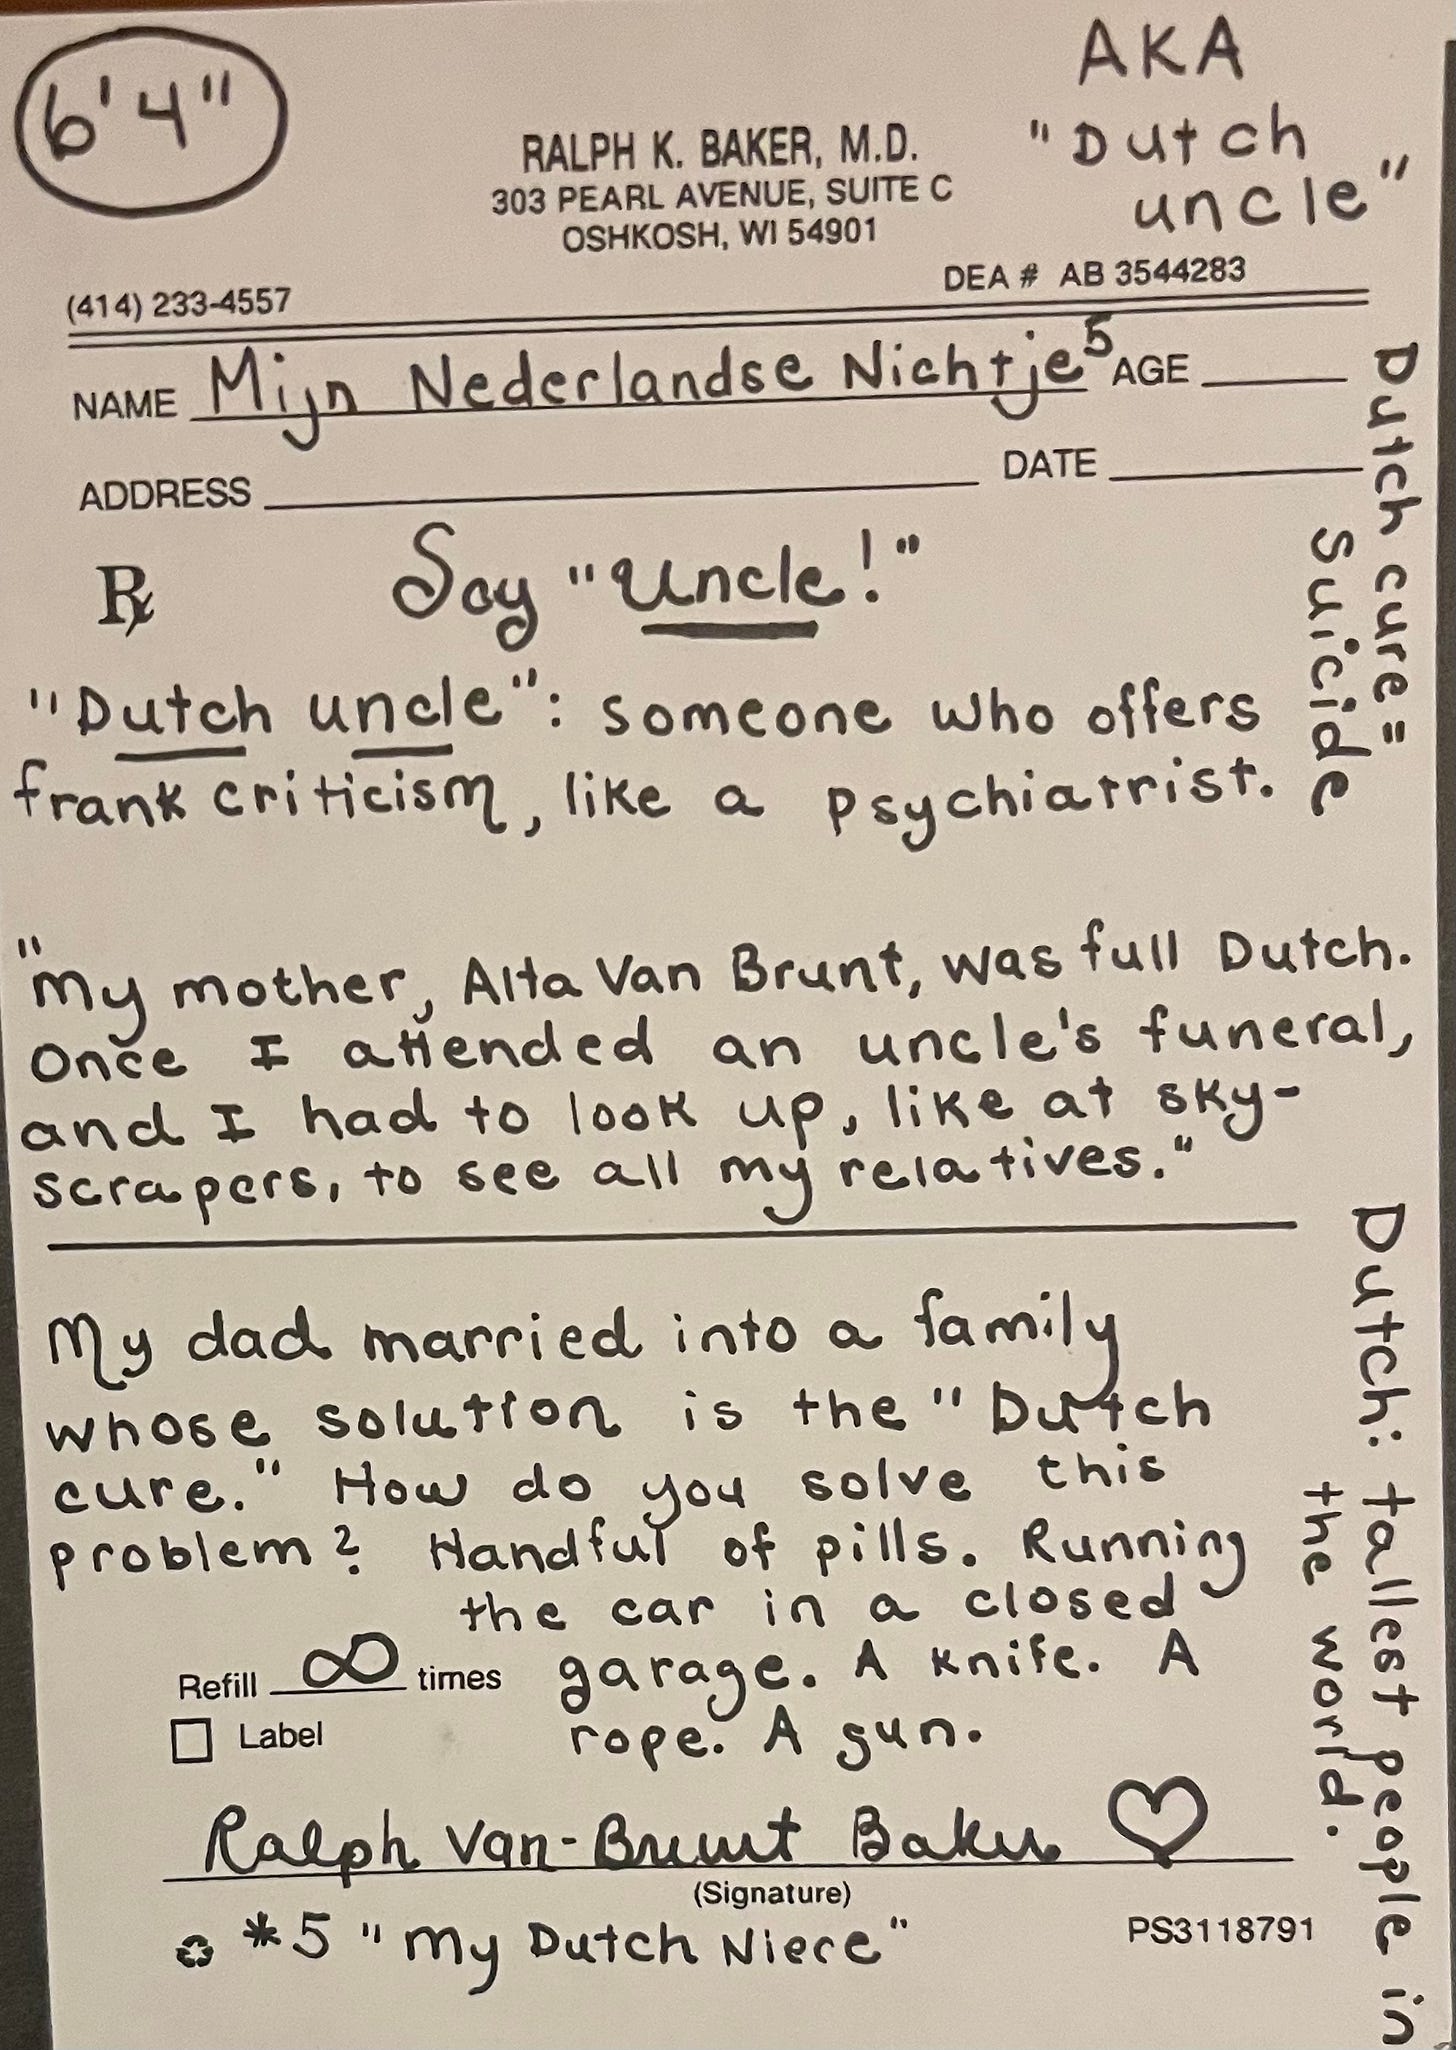 6'4"
AKA
"Dutch
uncle"
RALPH K. BAKER, M.D.
303 PEARL AVENUE, SUITE C
OSHKOSH, WI 54901
(414) 233-4557
DEA # AB 3544283
NAME Mijn Nederlandse Nichtje5 AGE
ADDRESS DATE
Rx Say "Uncle!"
"Dutch uncle": someone who offers
frank criticism, like a psychiatrist.
Dutch cure =
Suicide
"My mother, Alta Van Brunt, was full Dutch.
Once I attended an uncle's funeral,
and I had to look up, like at sky-
scrapers, to see all my relatives."
My dad married into a family
whose solution is the "Dutch
cure." How do you solve this
problem? Handful of pills. Running
the car in a closed
garage. A knife. A
rope. A gun.
Refill ∞ times
Label
Dutch: tallest people in
the world.
Ralph Van-Brunt Baker ♡
(Signature)
*5 "My Dutch Niece"
PS3118791